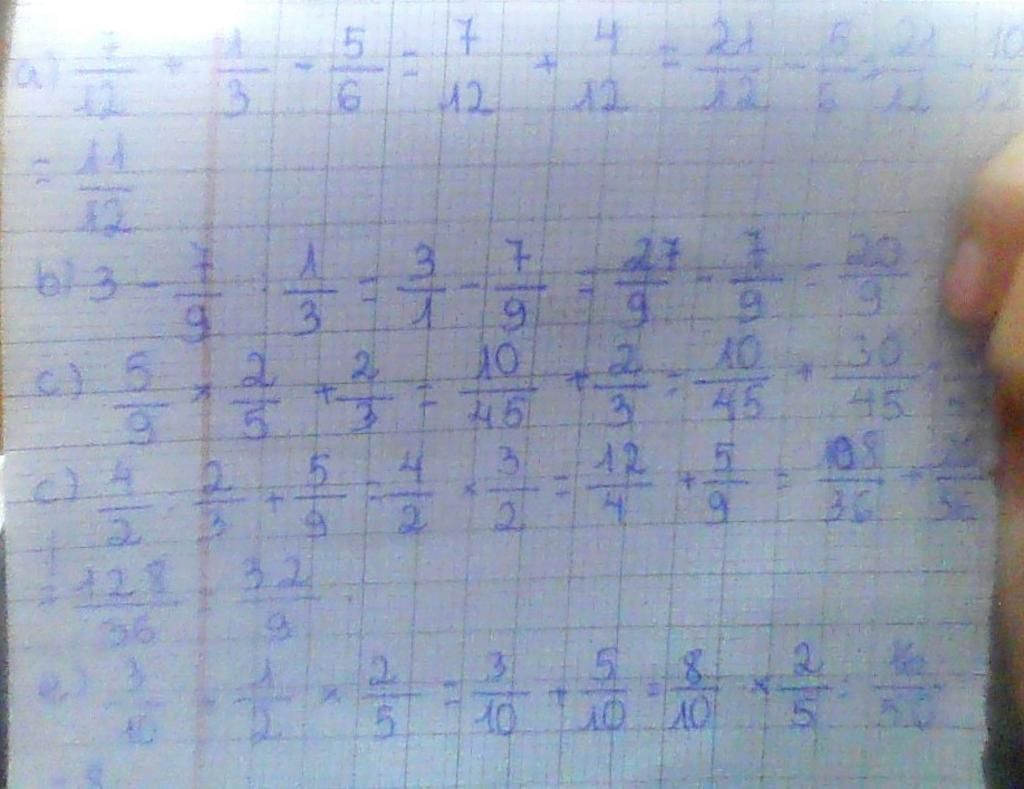 a) 7/12 + 1/3 - 5/6 = 7/12 + 4/12 = 21/12 - 5/6 = 21/12 - 10/12
= 11/12
b) 3 - 7/9 · 1/3 = 3/1 - 7/9 = 27/9 - 7/9 = 20/9
c) 5/9 × 2/5 + 2/3 = 10/45 + 2/3 = 10/45 + 30/45
c) 4/2 : 2/3 + 5/9 = 4/2 × 3/2 = 12/4 + 5/9 =
= 128/36 = 32/9
e) × 2/5 = 3/10 + 5/10 = 8/10 × 2/5 =